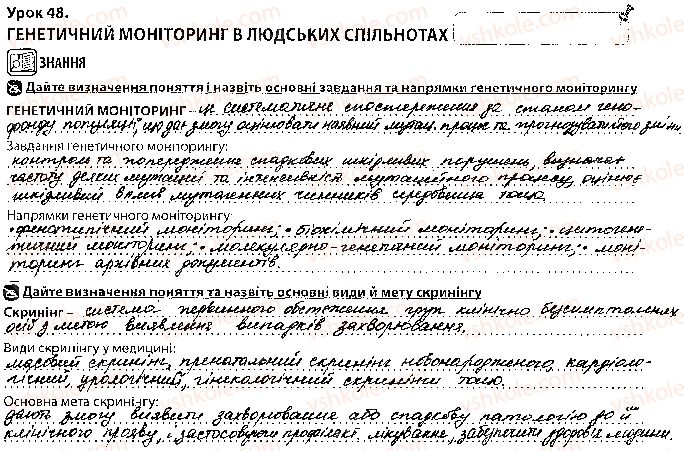 Урок 48.
ГЕНЕТИЧНИЙ МОНІТОРИНГ В ЛЮДСЬКИХ СПІЛЬНОТАХ
ЗНАННЯ
Дайте визначення поняття і назвіть основні завдання та напрямки генетичного моніторингу
ГЕНЕТИЧНИЙ МОНІТОРИНГ – це систематичне спостереження за станом гено-
фонду популяції, що дає змогу оцінювати наявний мутац. процес та прогнозувати його зміни.
Завдання генетичного моніторингу:
контроль та попередження спадкових шкідливих порушень, визначає
частоту деяких мутацій та інтенсивність мутаційного процесу, оцінює
шкідливий вплив мутагенних чинників середовища тощо.
Напрямки генетичного моніторингу:
• фенотипічний моніторинг; • біохімічний моніторинг; • цитогене-
тичний моніторинг; • молекулярно-генетичний моніторинг; • моні-
торинг архівних документів.
Дайте визначення поняття та назвіть основні види й мету скринінгу
Скринінг – система первинного обстеження груп клінічно безсимптомних
осіб з метою виявлення випадків захворювання.
Види скринінгу у медицині:
масовий скринінг, пренатальний скринінг новонародженого, кардіоло-
гічний, урологічний, гінекологічний скринінги тощо.
Основна мета скринінгу:
дають змогу виявити захворювання або спадкову патологію до її
клінічного прояву, і застосовуючи профілакт. лікування, забезпечити здоров'я людини.